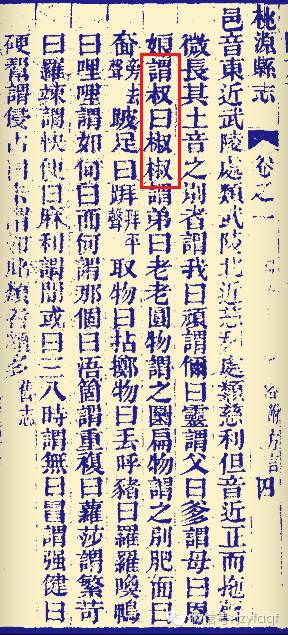 桃源縣志 卷之一 附方言 四
邑音東近武陵處類武陵北近慈利處類慈利但音近正而拖
微長其土音之別者謂我曰頑謂儞曰靈謂父曰爹謂母曰恩
娘謂叔曰椒椒謂弟曰老老圓物謂之圞扁物謂之別肥面曰
旁去聲跛足曰跰拜平聲取物曰拈擲物曰丟呼豬曰羅羅喚鴨
曰哩哩謂如何曰而何謂那個曰浯箇謂重複曰蘿莎謂繁苛
曰羅辣謂快便曰麻利謂間或曰三八時謂無曰冒謂强健曰
硬幫謂侵占曰 類 舊志